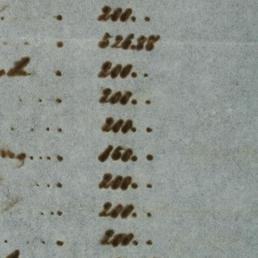 200.
526.38
200.
200.
200.
150.
200.
200.
200.